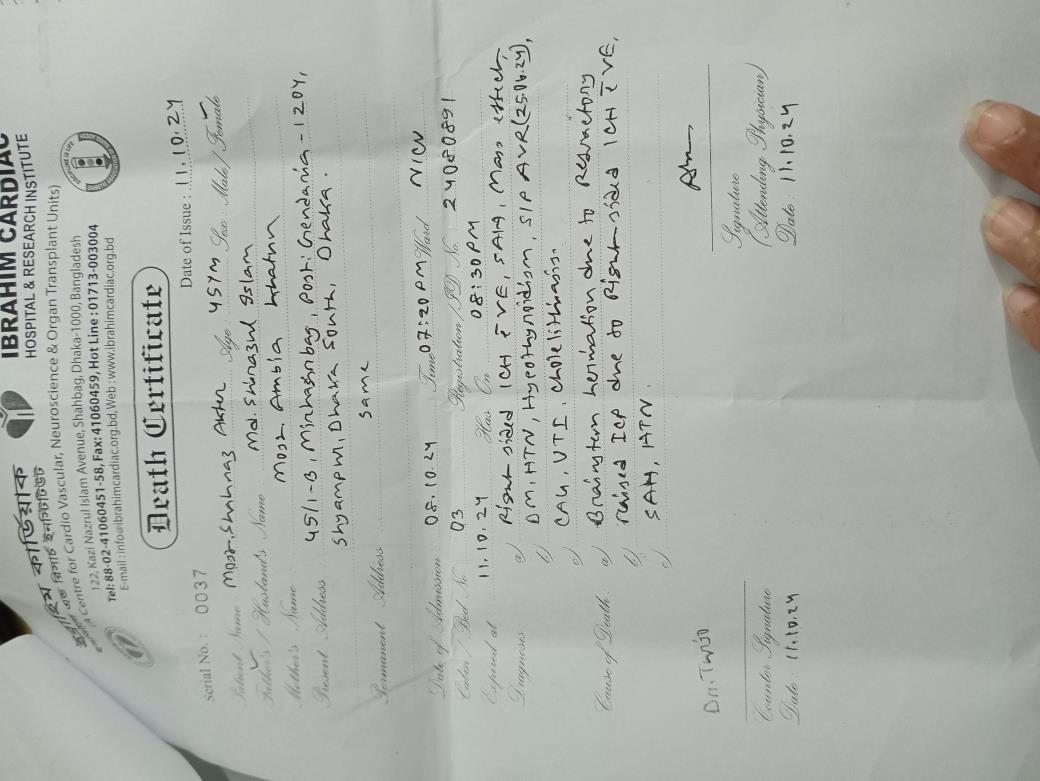 ইব্রাহিম কার্ডিয়াক
IBRAHIM CARDIAC
HOSPITAL & RESEARCH INSTITUTE
(A Centre for Cardio Vascular, Neuroscience & Organ Transplant Units)
122, Kazi Nazrul Islam Avenue, Shahbag, Dhaka-1000, Bangladesh
Tel: 88-02-41060451-58, Fax: 41060459, Hot Line : 01713-003004
E-mail : info@ibrahimcardiac.org.bd, Web : www.ibrahimcardiac.org.bd
Death Certificate
Serial No. : 0037 Date of Issue : 11.10.24
Patient Name Mosr. Shahnaz Akter Age 45YM Sex : Male / Female
Father's / Husband's Name Md. Shirazul Islam
Mother's Name Mosr. Ambia Khatun
Present Address 45/1-B, Minhazribag, Post: Gendaria-1204,
Shyampur, Dhaka South, Dhaka.
Permanent Address Same
Date of Admission 08.10.24 Time 07:20 PM Ward NICU
Cabin / Bed No. 03 Registration / PD No. 24080891
Expired at 11.10.24 Hrs On 08:30 PM
Diagnoses a) Right sided ICH c̄ IVE, SAH, Mass effect,
b) DM, HTN, Hypothyroidism, S/P AVR (25.06.24),
c) UTI, Cholelithiasis.
Cause of Death a) Brainstem herniation due to Refractory
b) raised ICP due to Right sided ICH c̄ IVE,
c) SAH, HTN.
Counter Signature
Date 11.10.24
Signature
(Attending Physician)
Date 11.10.24